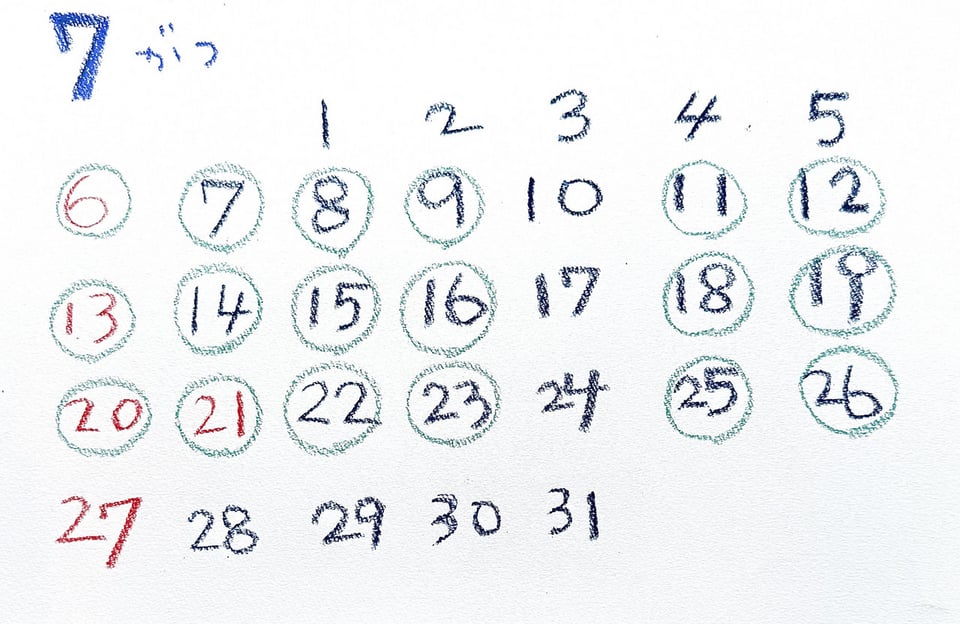 7 がつ
1 2 3 4 5
6 7 8 9 10 11 12
13 14 15 16 17 18 19
20 21 22 23 24 25 26
27 28 29 30 31